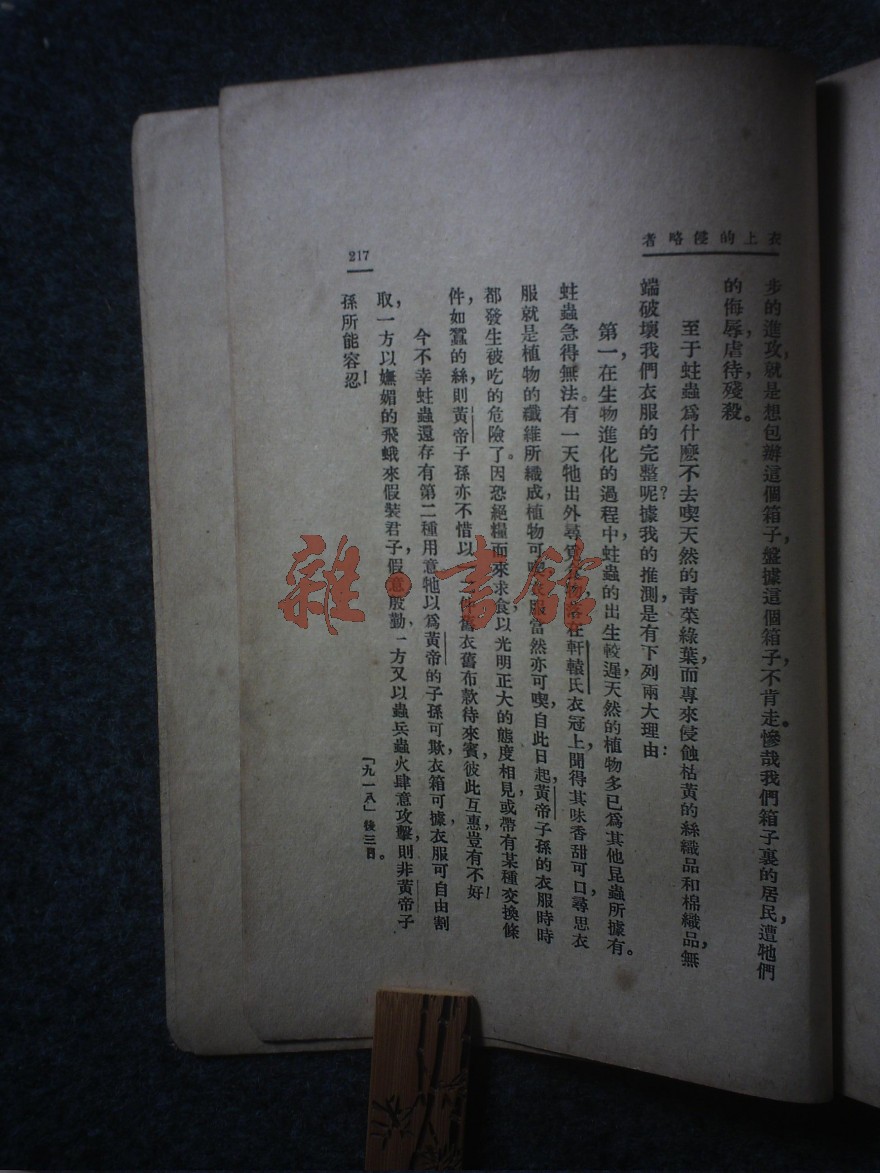 衣上的侵略者
步的進攻，就是想包辦這個箱子，盤據這個箱子，不肯走。慘哉我們箱子裏的居民，遭牠們
的侮辱，虐待，殘殺。
至于蛀蟲爲什麼不去喫天然的青菜綠葉，而專來侵蝕枯黃的絲織品和棉織品，無
端破壞我們衣服的完整呢？據我的推測，是有下列兩大理由：
第一，在生物進化的過程中，蛀蟲的出生較遲，天然的植物多已爲其他昆蟲所據有。
蛀蟲急得無法。有一天牠出外尋覓食物，落在軒轅氏衣冠上，聞得其味香甜可口，尋思衣
服就是植物的纖維所織成，植物可喫，衣服當然亦可喫，自此日起，黃帝子孫的衣服時時
都發生被吃的危險了。因恐絕糧而來求食，以光明正大的態度相見，或帶有某種交換條
件，如蠶的絲，則黃帝子孫亦不惜以一二件舊衣舊布款待來賓，彼此互惠，豈有不好！
今不幸蛀蟲還存有第二種用意，牠以爲黃帝的子孫可欺，衣箱可據，衣服可自由割
取，一方以嫵媚的飛蛾來假裝君子，假意殷勤，一方又以蟲兵蟲火肆意攻擊，則非黃帝子
孫所能容忍！
「九一八」後三日。
217
雜·書館